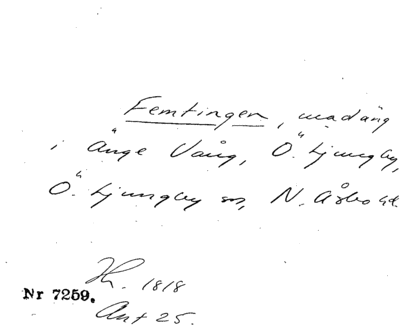 Femtingen, madäng
i Änge Vång, Ö. Ljungby,
Ö. Ljungby sn, N. Åsbo hd.
Nr 7259.
H. 1818
Ant 25.